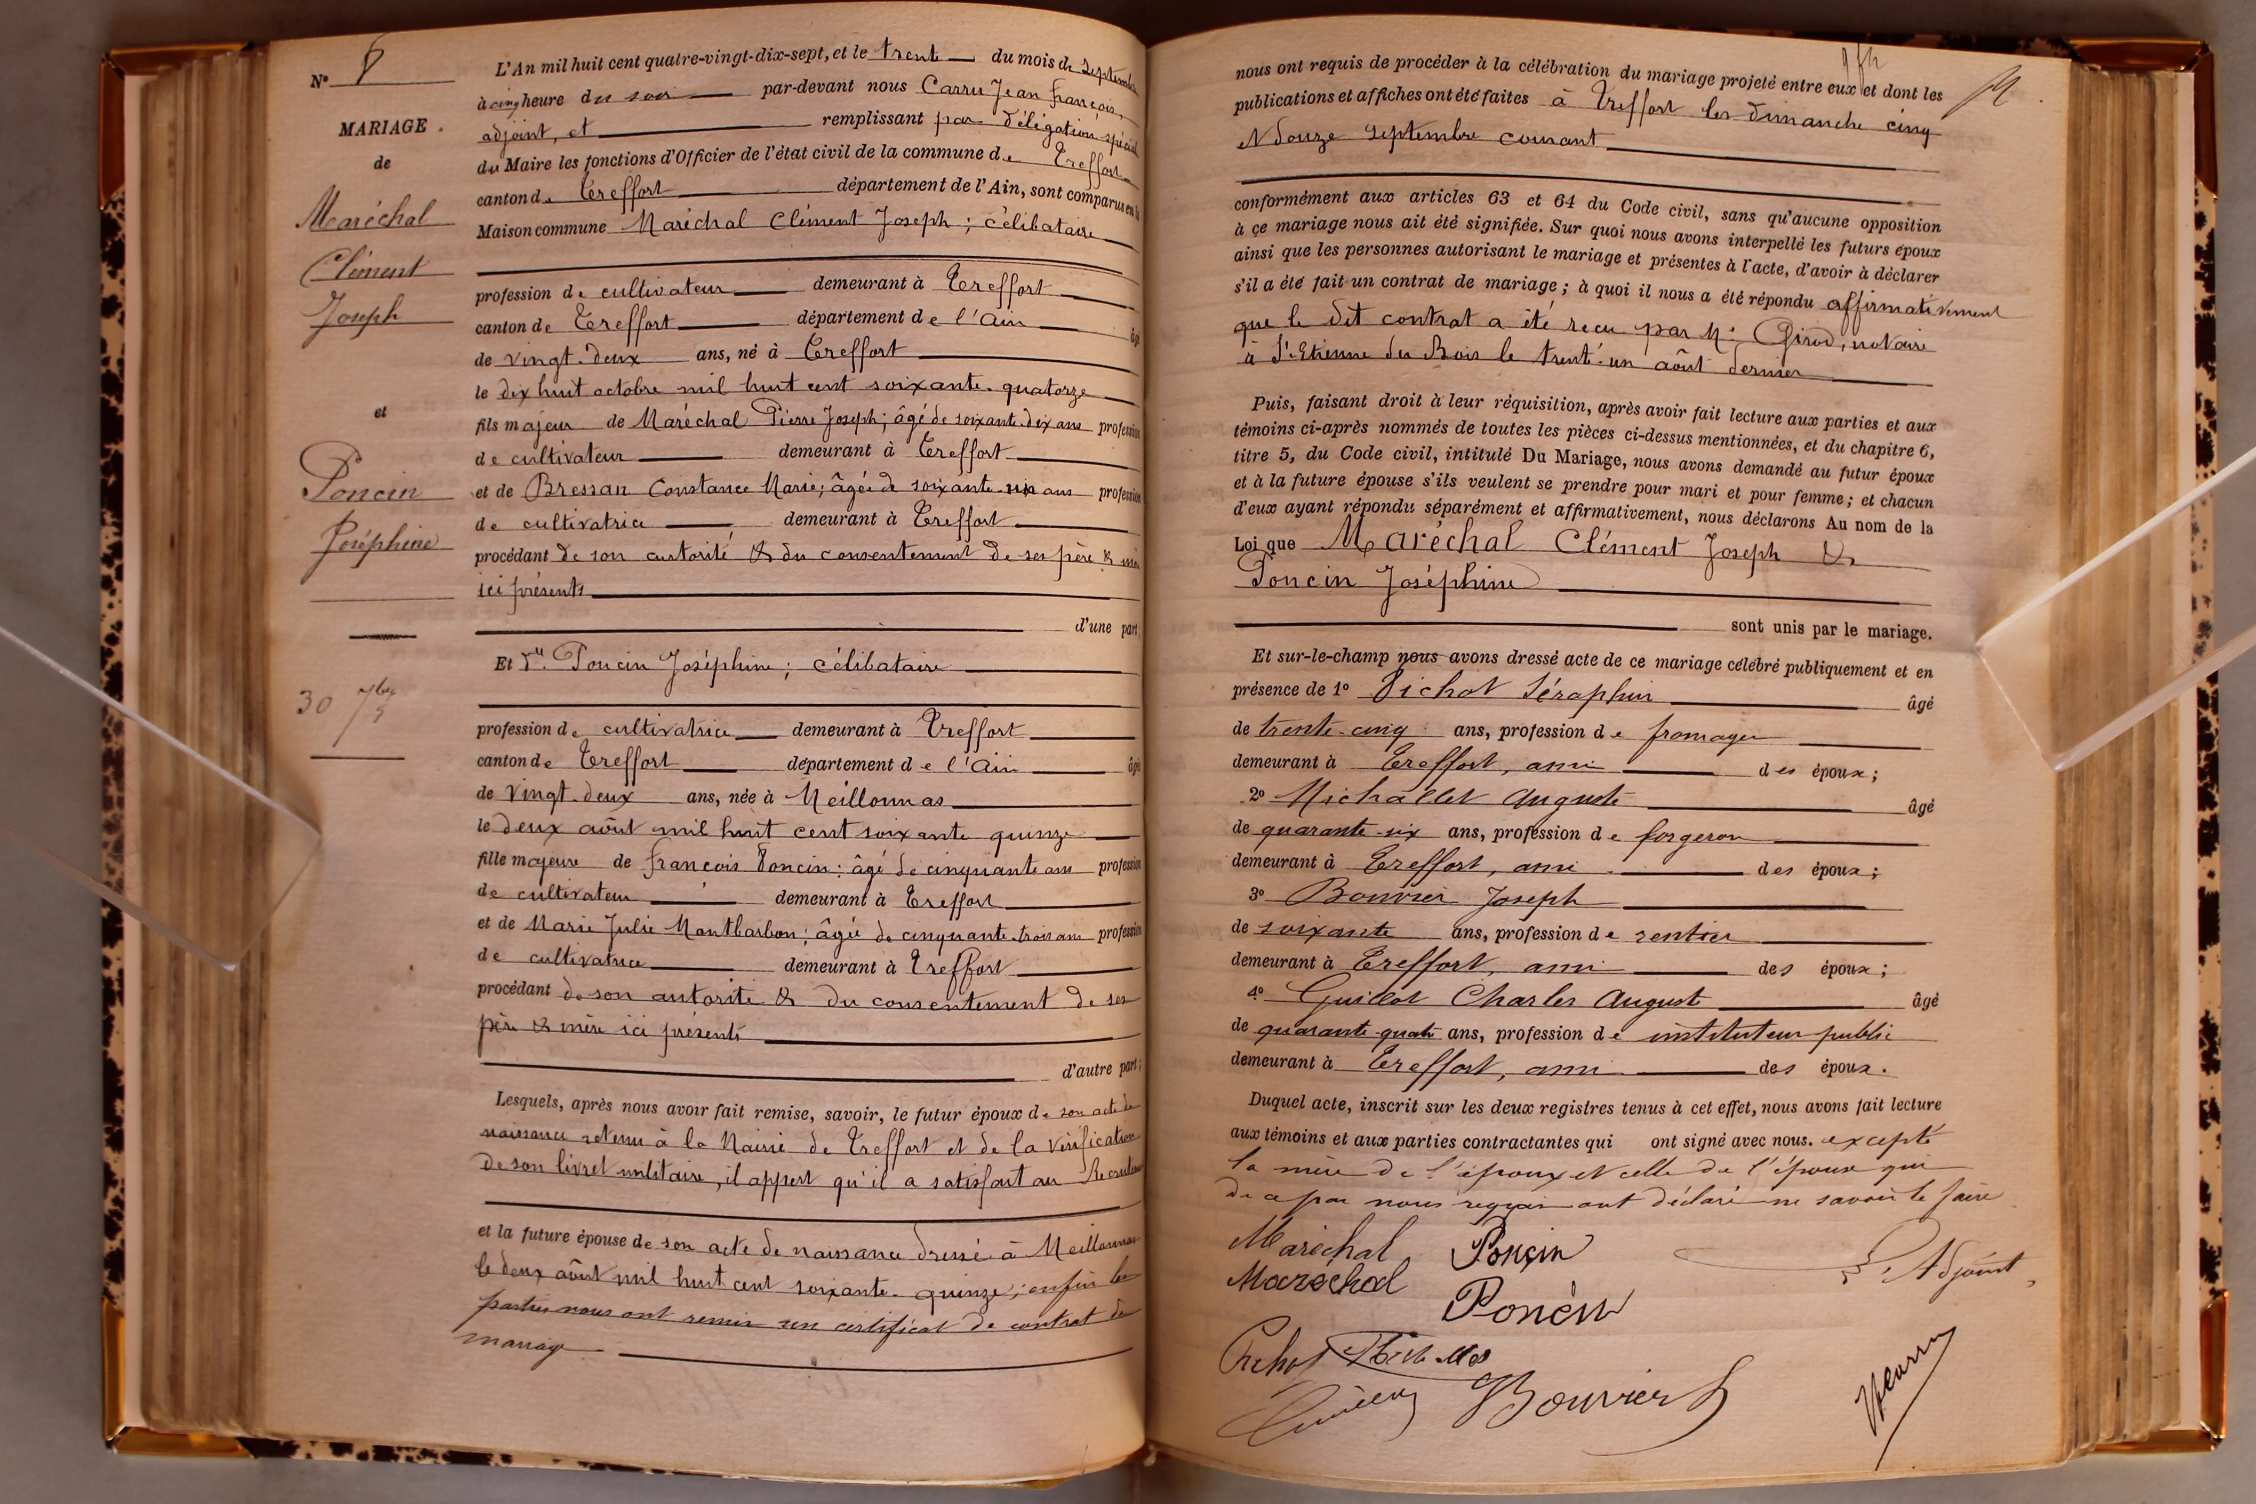 N° 8
MARIAGE
de
Maréchal
Clément
Joseph
et
Poncin
Joséphine
30 7bre
L'An mil huit cent quatre-vingt-dix-sept, et le trente du mois de Septembre
à cinq heure du soir par-devant nous Carru Jean François,
adjoint, et remplissant par délégation spéciale
du Maire les fonctions d'Officier de l'état civil de la commune de Treffort
canton de Treffort département de l'Ain, sont comparus en la
Maison commune Maréchal Clément Joseph ; célibataire
profession de cultivateur demeurant à Treffort
canton de Treffort département de l'Ain âgé
de vingt-deux ans, né à Treffort
le dix huit octobre mil huit cent soixante-quatorze
fils majeur de Maréchal Pierre Joseph ; âgé de soixante-dix ans profession
de cultivateur demeurant à Treffort
et de Bressan Constance Marie ; âgée de soixante-un ans profession
de cultivatrice demeurant à Treffort
procédant de son autorité & du consentement de ses père & mère
ici présents
d'une part,
Et Dlle Poncin Joséphine ; célibataire
profession de cultivatrice demeurant à Treffort
canton de Treffort département de l'Ain âgé
de vingt-deux ans, née à Meillonnas
le deux août mil huit cent soixante quinze
fille majeure de François Poncin : âgé de cinquante ans profession
de cultivateur demeurant à Treffort
et de Marie Julie Montbarbon ; âgée de cinquante-trois ans profession
de cultivatrice demeurant à Treffort
procédant de son autorité & du consentement de ses
père & mère ici présents
d'autre part ;
Lesquels, après nous avoir fait remise, savoir, le futur époux de son acte de
naissance retenu à la Mairie de Treffort et de la vérification
de son livret militaire, il appert qu'il a satisfait au Recrutement
et la future épouse de son acte de naissance dressé à Meillonnas
le deux août mil huit cent soixante-quinze ; enfin les
parties nous ont remis un certificat de contrat de
mariage
nous ont requis de procéder à la célébration du mariage projeté entre eux et dont les
publications et affiches ont été faites à Treffort les dimanche cinq
et douze septembre courant
conformément aux articles 63 et 64 du Code civil, sans qu'aucune opposition
à ce mariage nous ait été signifiée. Sur quoi nous avons interpellé les futurs époux
ainsi que les personnes autorisant le mariage et présentes à l'acte, d'avoir à déclarer
s'il a été fait un contrat de mariage ; à quoi il nous a été répondu affirmativement
que le dit contrat a été recu par Me Girod, notaire
à St Etienne du Bois le trente-un août dernier
Puis, faisant droit à leur réquisition, après avoir fait lecture aux parties et aux
témoins ci-après nommés de toutes les pièces ci-dessus mentionnées, et du chapitre 6,
titre 5, du Code civil, intitulé Du Mariage, nous avons demandé au futur époux
et à la future épouse s'ils veulent se prendre pour mari et pour femme ; et chacun
d'eux ayant répondu séparément et affirmativement, nous déclarons Au nom de la
Loi que Maréchal Clément Joseph &
Poncin Joséphine
sont unis par le mariage.
Et sur-le-champ nous avons dressé acte de ce mariage célébré publiquement et en
présence de 1° Pichot Séraphin âgé
de trente-cinq ans, profession de fromager
demeurant à Treffort, ami des époux ;
2° Michallet Auguste âgé
de quarante-six ans, profession de forgeron
demeurant à Treffort, ami des époux ;
3° Bouvier Joseph
de soixante ans, profession de rentier
demeurant à Treffort, ami des époux ;
4° Guillot Charles Auguste âgé
de quarante-quatre ans, profession de instituteur public
demeurant à Treffort, ami des époux.
Duquel acte, inscrit sur les deux registres tenus à cet effet, nous avons fait lecture
aux témoins et aux parties contractantes qui ont signé avec nous. excepté
la mère de l'époux et celle de l'épouse qui
de ce par nous requis ont déclaré ne savoir le faire
Maréchal Poncin
L'Adjoint,
Maréchal
Poncin
Pichot
Bouvier